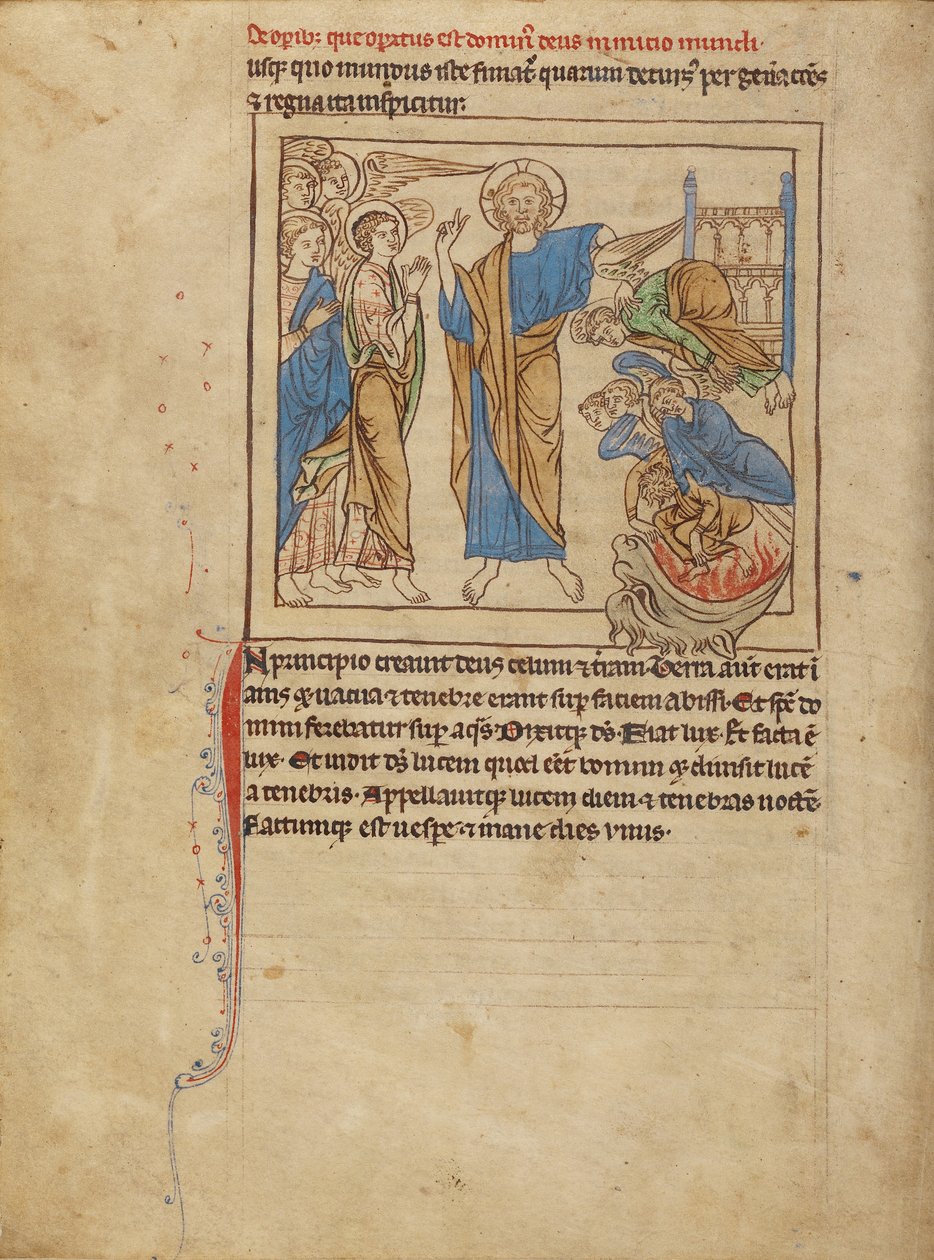 De oꝑibꝫ que oꝑatus est dominꝰ deus in inicio mundi·
usqꝫ quo mundus iste funat̄ quarum decursꝰ per gen̄acc̄es
⁊ regna ita inspicitur.
IN principio creauit deus celum ⁊ t̄ram. Terra aut̄ erat ī
anis ⁊ uacua ⁊ tenebre erant suꝑ faciem abissi. Et sp̄c do
mini ferebatur suꝑ aq̄s. Dixitqꝫ ds̄. Fiat lux. Et facta ē
lux. Et uidit ds̄ lucem quod eēt bonum ⁊ diuisit lucē
a tenebris. Appellauitqꝫ lucem diem ⁊ tenebras noctē.
Factumqꝫ est uesꝑe ⁊ mane dies vnus.